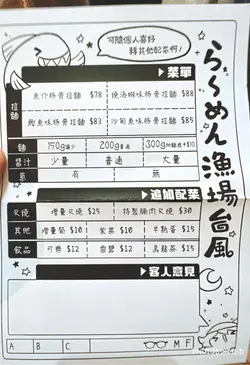 可隨個人喜好
轉其他配菜啊!
らーめん漁場台風
▶菜單
拉麵
魚介豚骨拉麵 $78
燒汁蝦味豚骨拉麵 $88
鰹魚味豚骨拉麵 $83
沙甸魚味豚骨拉麵 $85
麵 150g 200g普通 300g +$10
醬汁 少量 普通 大量
蔥 有 無
▶追加配菜
叉燒 增量叉燒 $25 特製腩肉叉燒 $30
其他 增量筍 $10 紫菜 $10 半熟蛋 $15
飲品 可樂 $12 雪碧 $12 烏龍茶 $15
▶客人意見
A B C M F